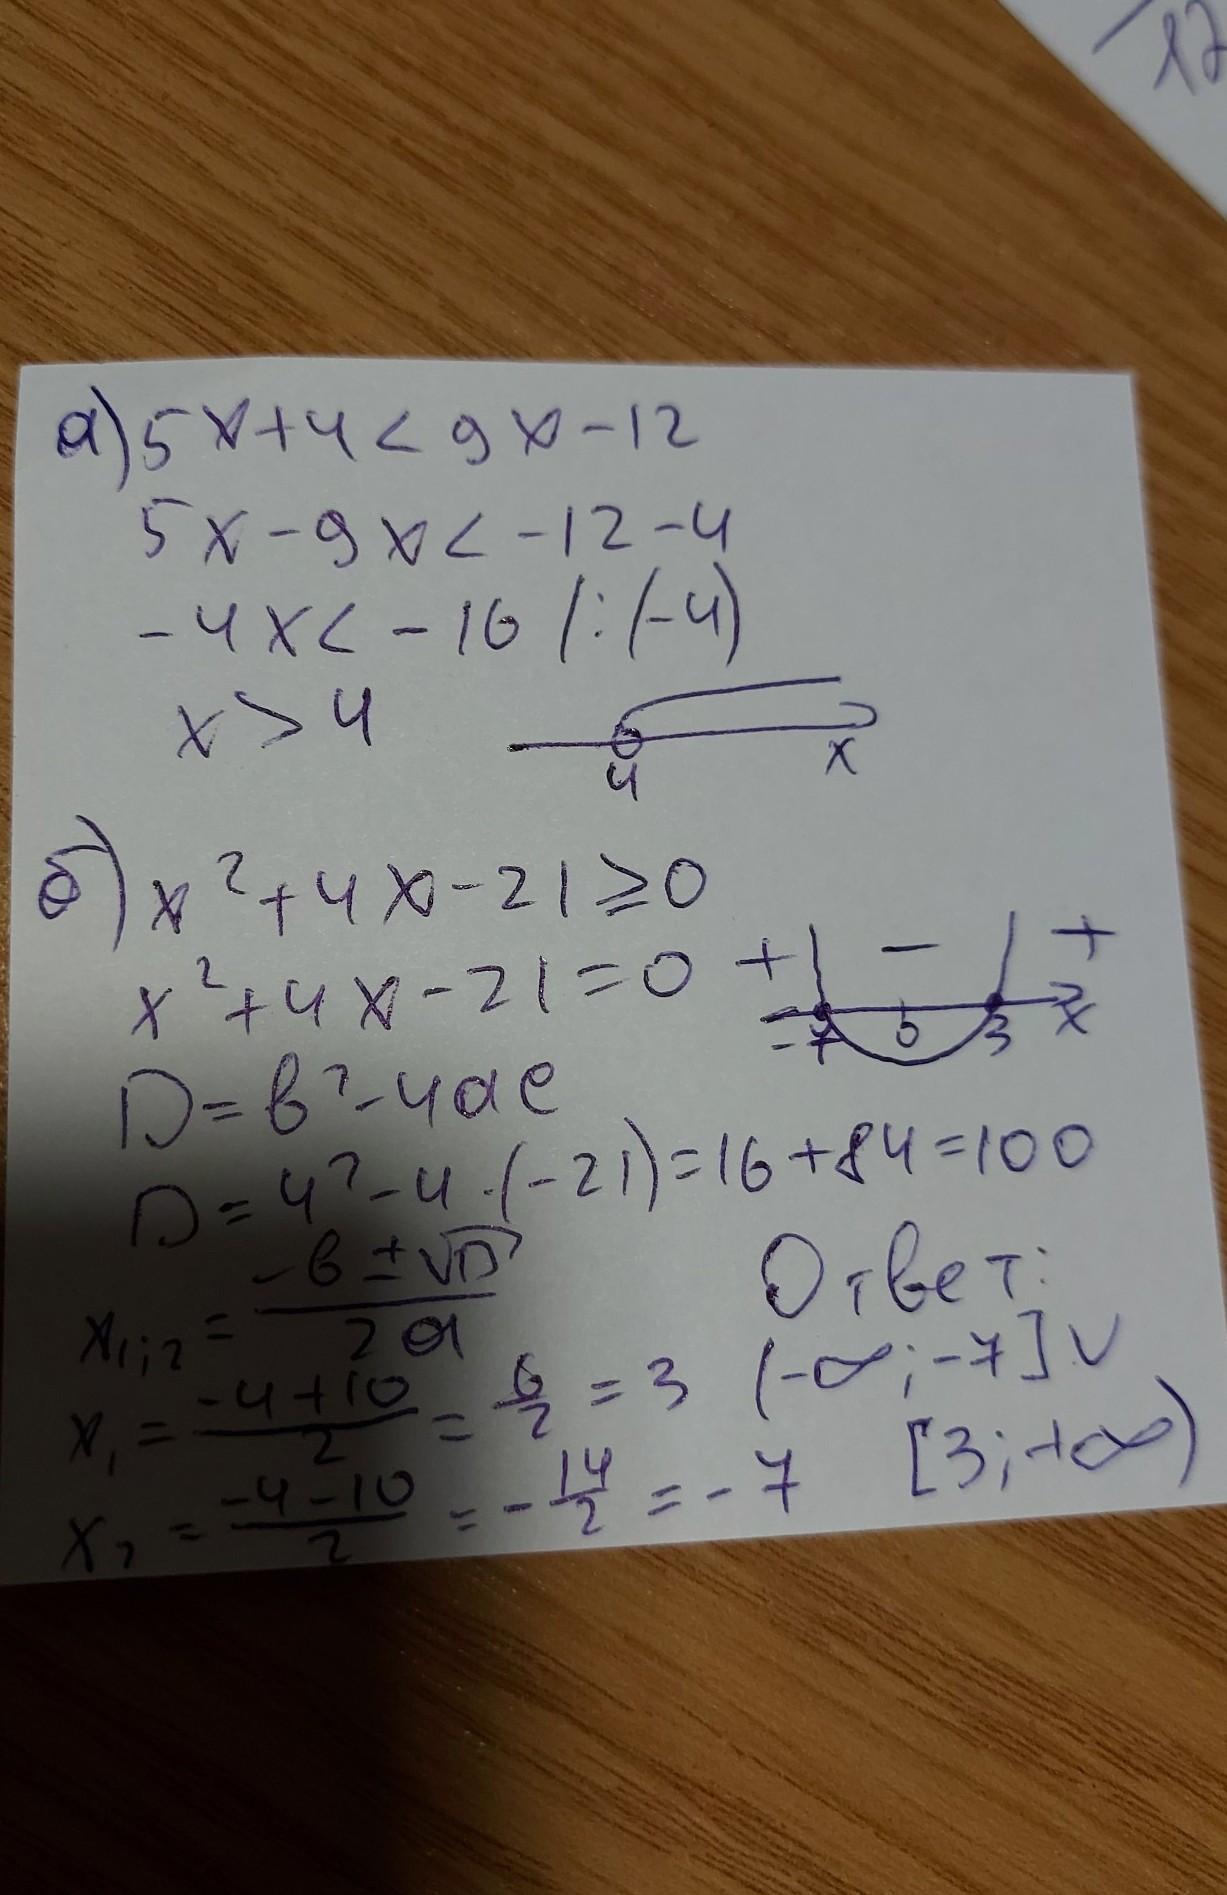 а) 5x+4<9x-12
5x-9x<-12-4
-4x<-16 /:(-4)
x>4
4 x
б) x²+4x-21≥0
x²+4x-21=0
+ - +
-7 0 3 x
D=b²-4ac
D=4²-4·(-21)=16+84=100
x₁;₂=(-b±√D)/2a
x₁=(-4+10)/2=6/2=3
x₂=(-4-10)/2=-14/2=-7
Ответ:
(-∞;-7]∪
[3;+∞)